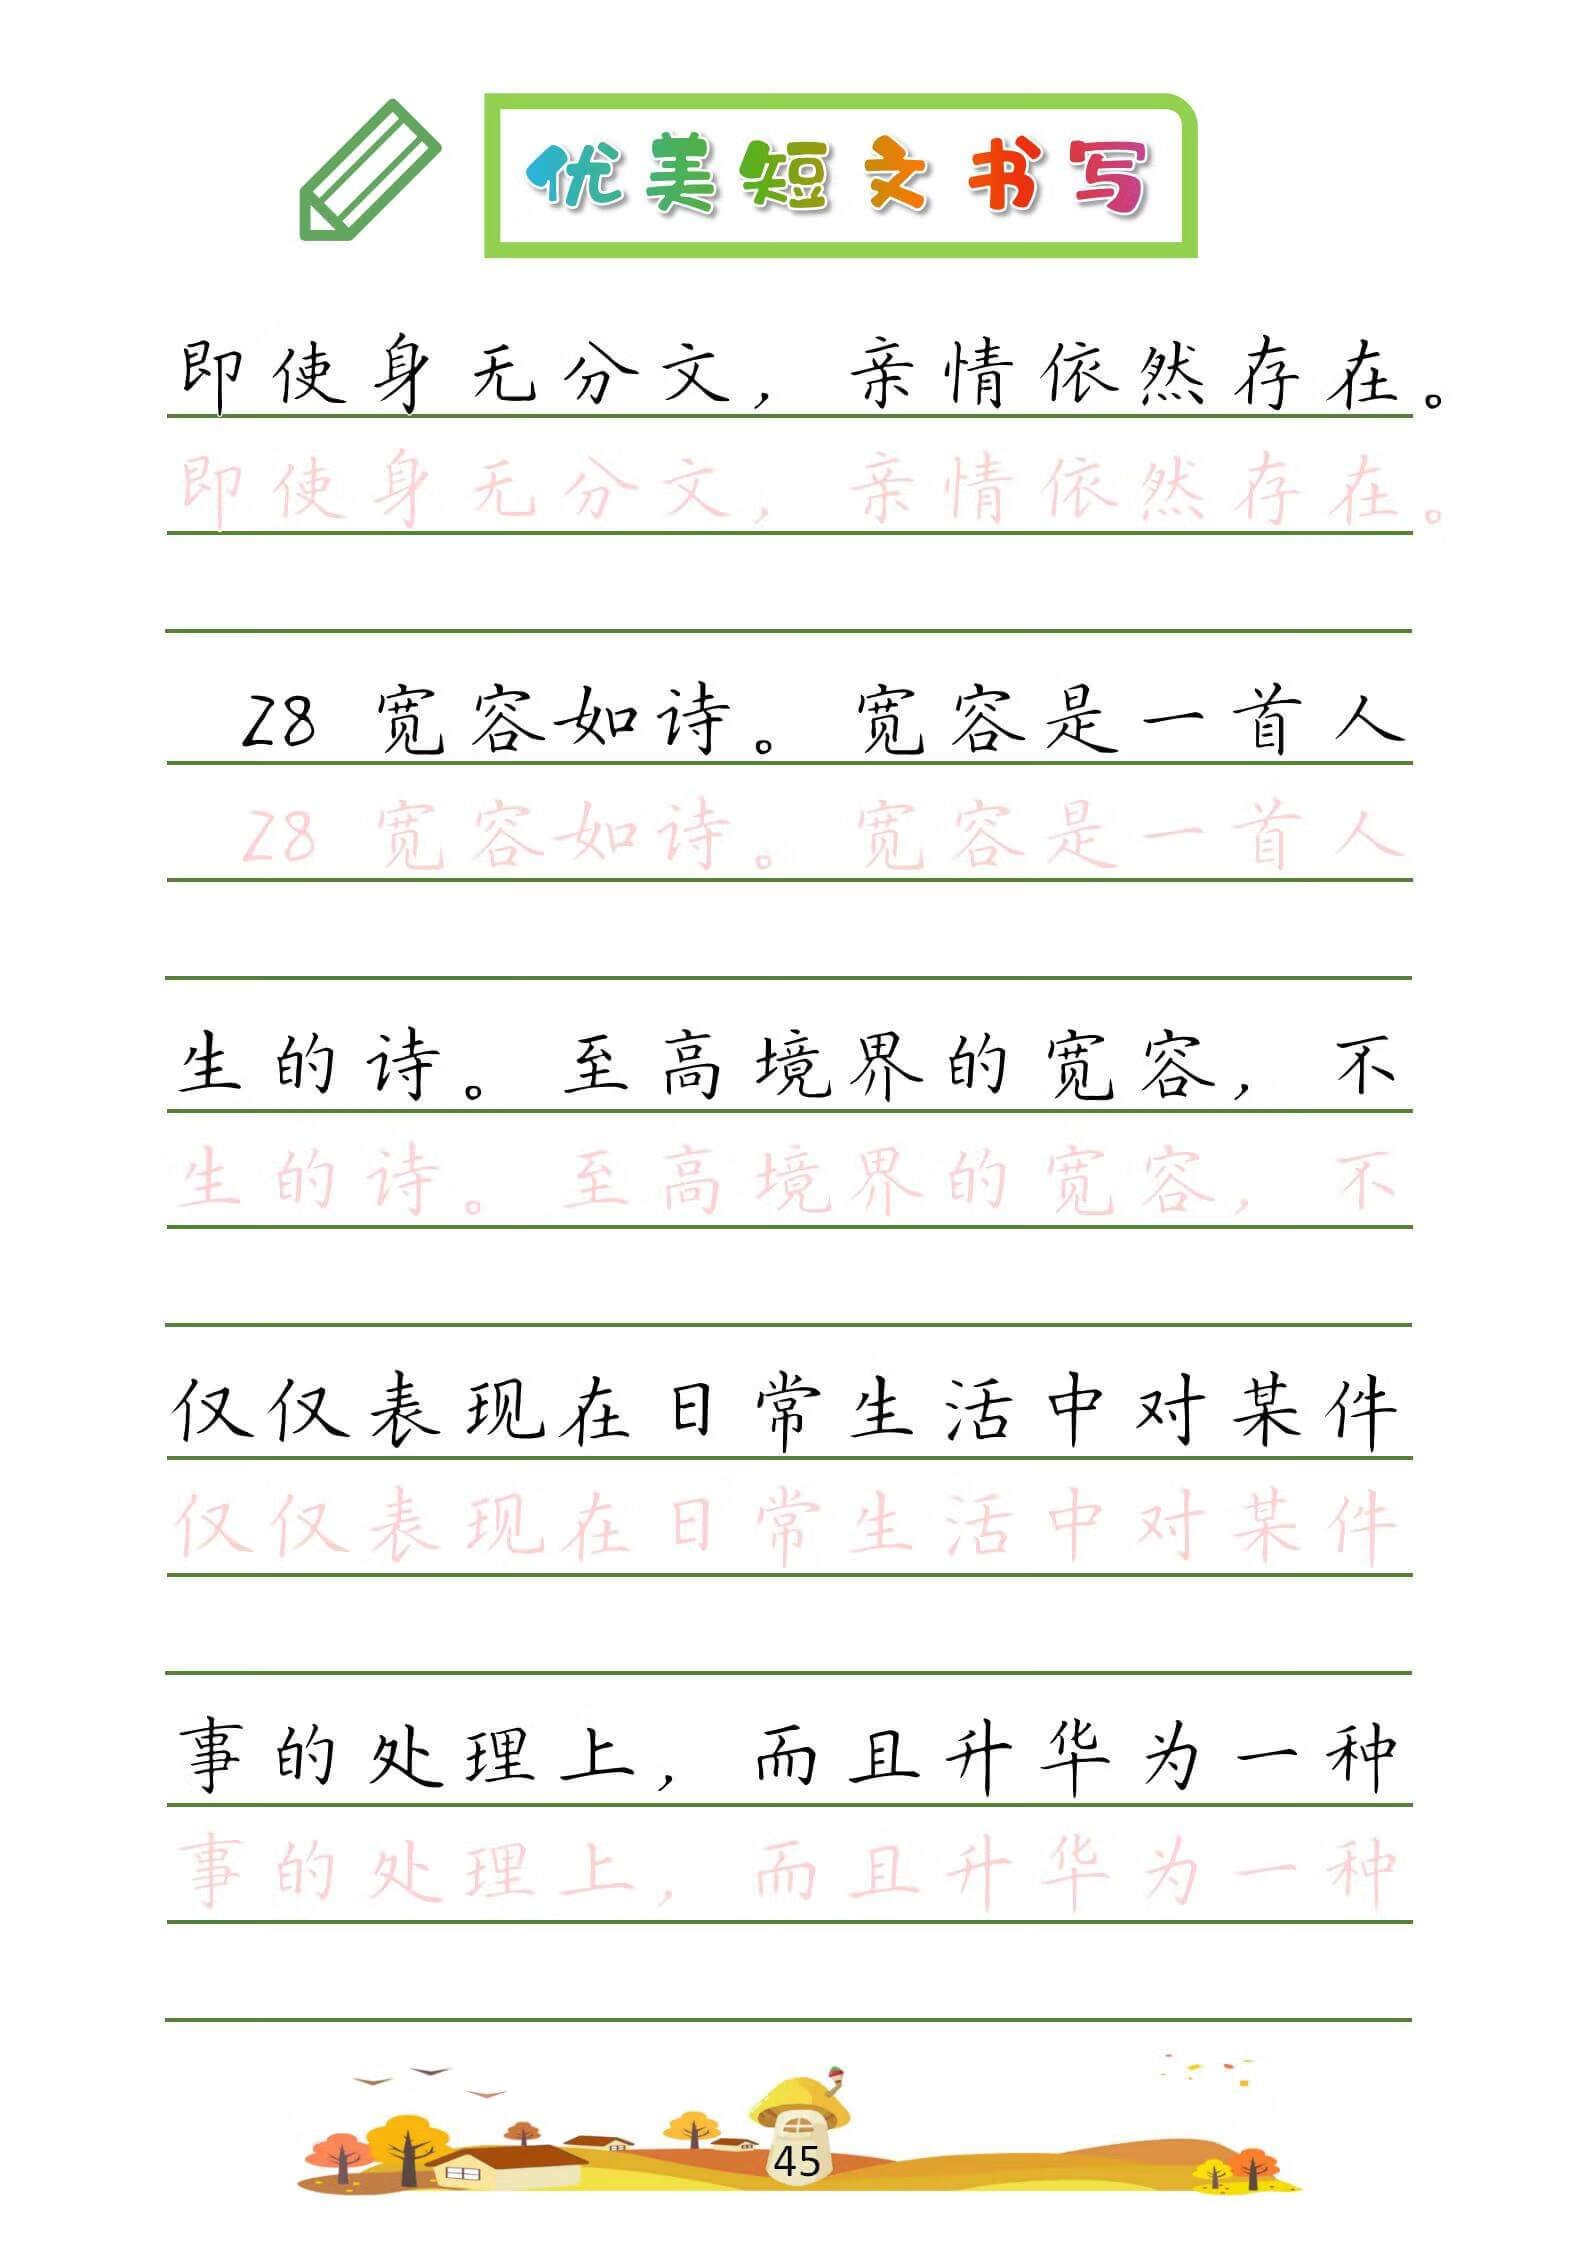 优美短文书写
即使身无分文，亲情依然存在。
即使身无分文，亲情依然存在。
28 宽容如诗。宽容是一首人
28 宽容如诗。宽容是一首人
生的诗。至高境界的宽容，不
生的诗。至高境界的宽容，不
仅仅表现在日常生活中对某件
仅仅表现在日常生活中对某件
事的处理上，而且升华为一种
事的处理上，而且升华为一种
45